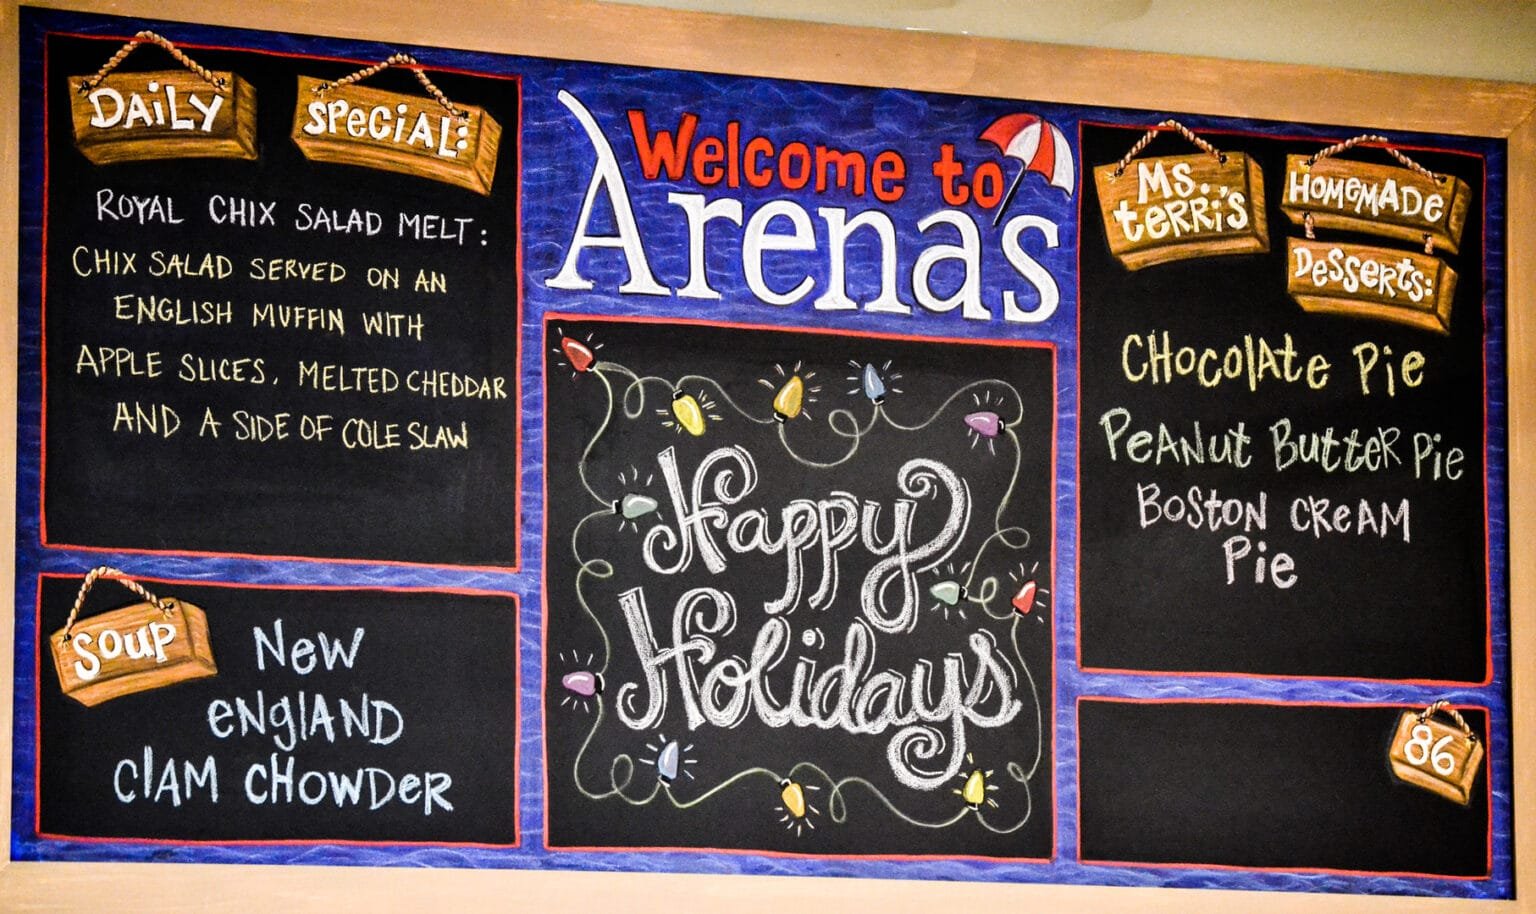 DAILY SPECIAL:
ROYAL CHIX SALAD MELT:
CHIX SALAD SERVED ON AN
ENGLISH MUFFIN WITH
APPLE SLICES, MELTED CHEDDAR
AND A SIDE OF COLE SLAW
SOUP
New
eNglAND
ClAM CHOWDeR
Welcome to
Arena's
Happy
Holidays
MS.
teRRi'S
HOMeMADe
DeSSeRtS:
CHocolAte Pie
PeANut ButteR Pie
BoStoN CReAM
Pie
86